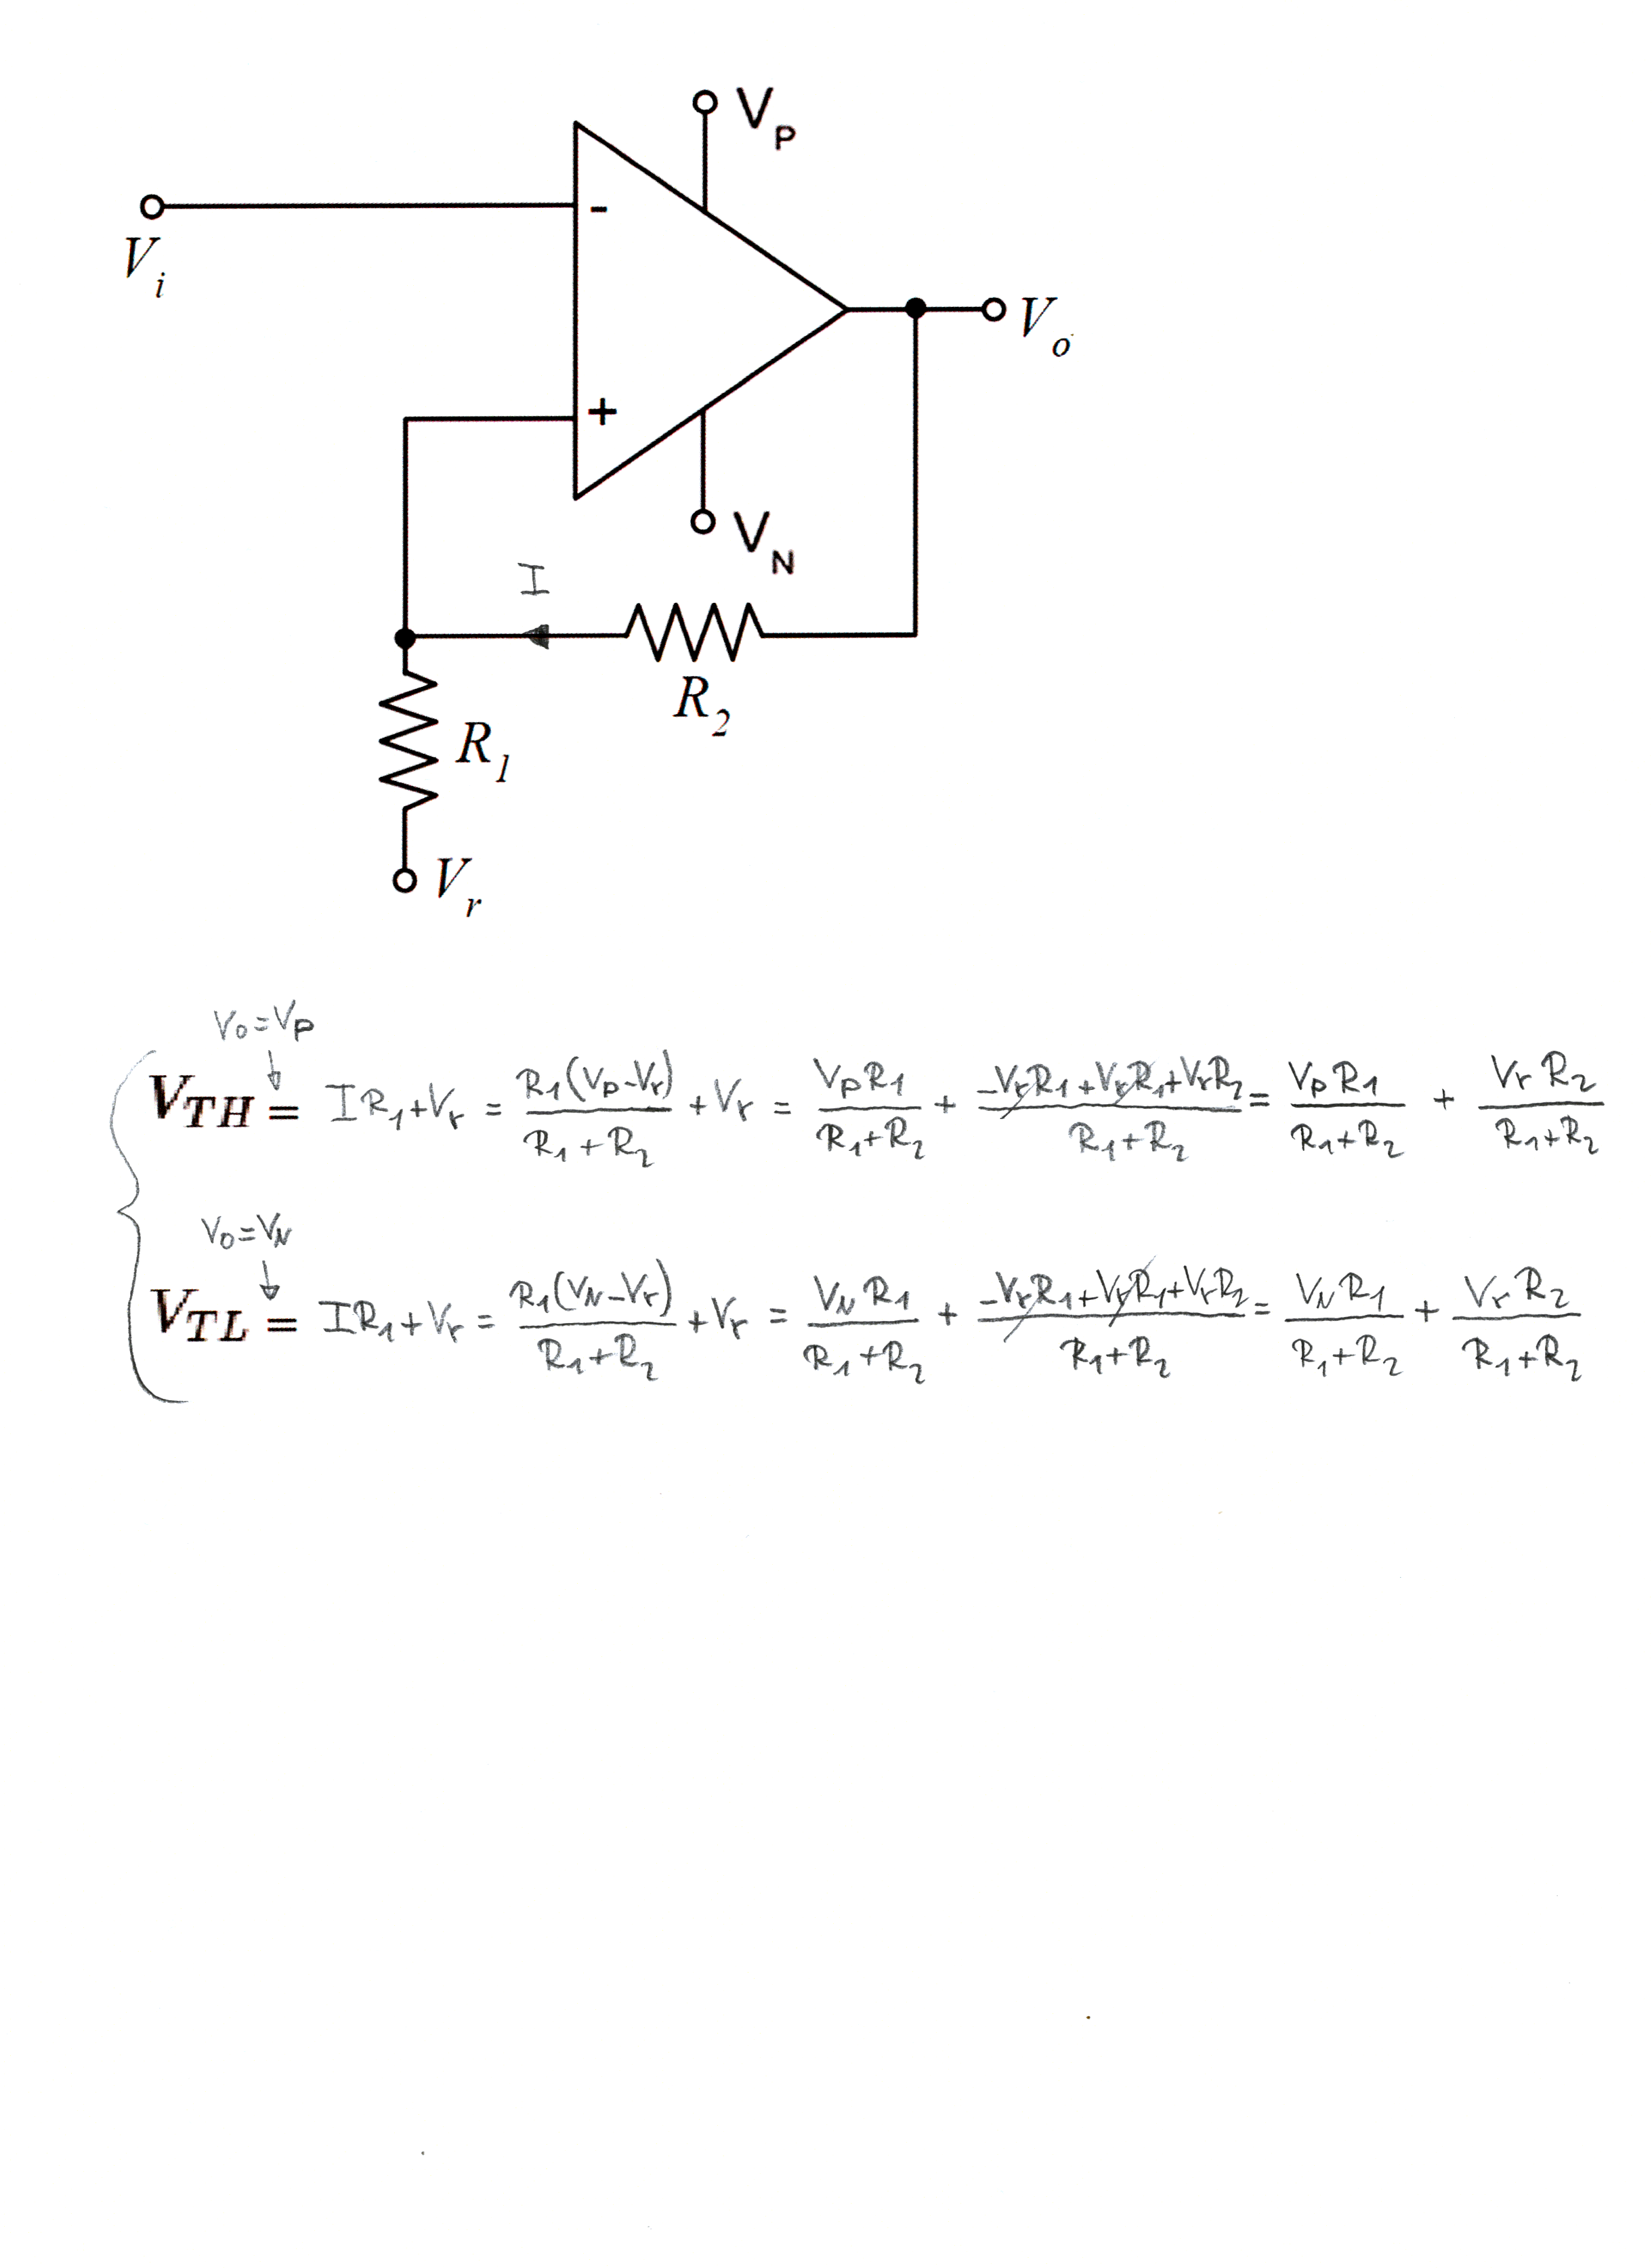 V_P
-
V_i
V_o
+
V_N
I
R_2
R_1
V_r
V_o=V_P
↓
V_TH = IR_1+V_r = R_1(V_P-V_r)/(R_1+R_2) + V_r = V_P R_1/(R_1+R_2) + (-V_r R_1+V_r R_1+V_r R_2)/(R_1+R_2) = V_P R_1/(R_1+R_2) + V_r R_2/(R_1+R_2)
V_o=V_N
↓
V_TL = IR_1+V_r = R_1(V_N-V_r)/(R_1+R_2) + V_r = V_N R_1/(R_1+R_2) + (-V_r R_1+V_r R_1+V_r R_2)/(R_1+R_2) = V_N R_1/(R_1+R_2) + V_r R_2/(R_1+R_2)